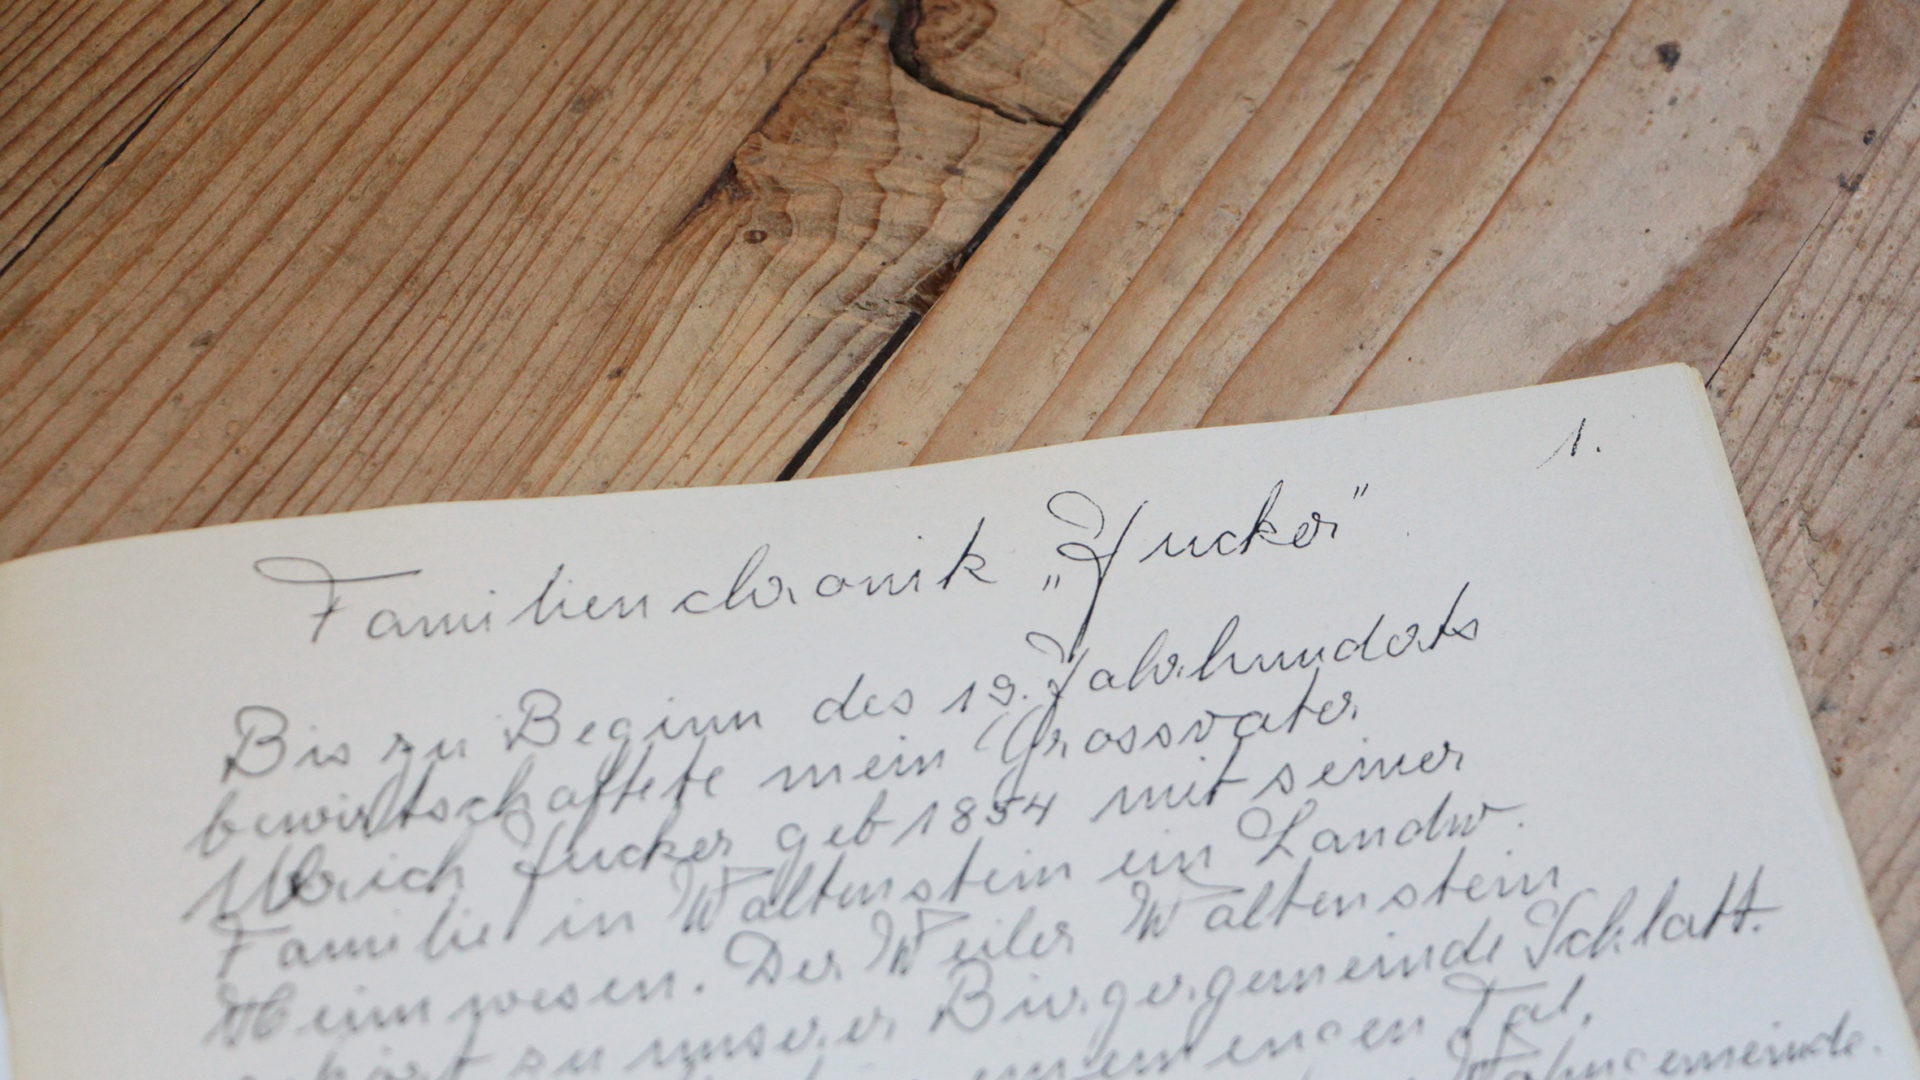 1.
Familienchronik „Jucker"
Bis zu Beginn des 19. Jahrhunderts
bewirtschaftete mein Grossvater
Ulrich Jucker geb 1854 mit seiner
Familie in Waltenstein ein Landw.
Heimwesen. Der Weiler Waltenstein
gehört zu unserer Bürgergemeinde Schlatt.
einem engen Tal,